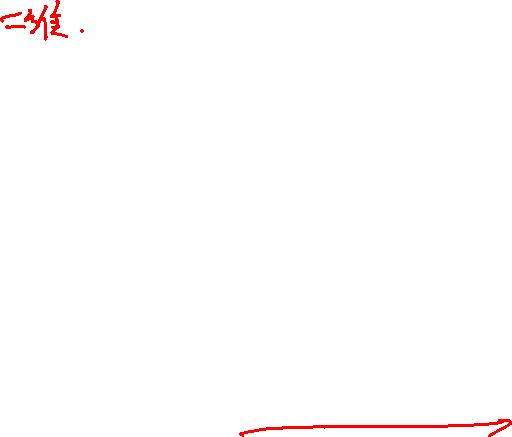 二维.